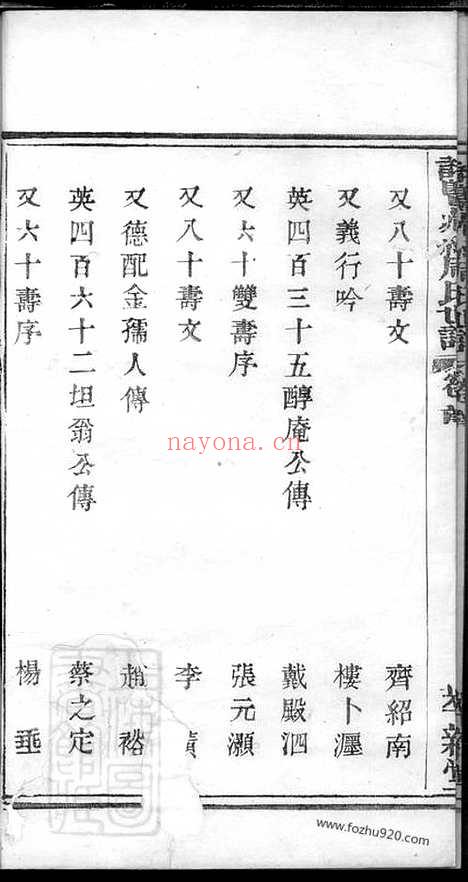 又八十壽文 齊紹南
又義行吟 樓卜瀍
英四百三十五醇庵公傳 戴殿泗
又六十雙壽序 張元灝
又八十壽文 李
又德配金孺人傳 趙裕
英四百六十二坦翁公傳 蔡之定
又六十壽序 楊垂
nayona.cn
www.fozhu920.com